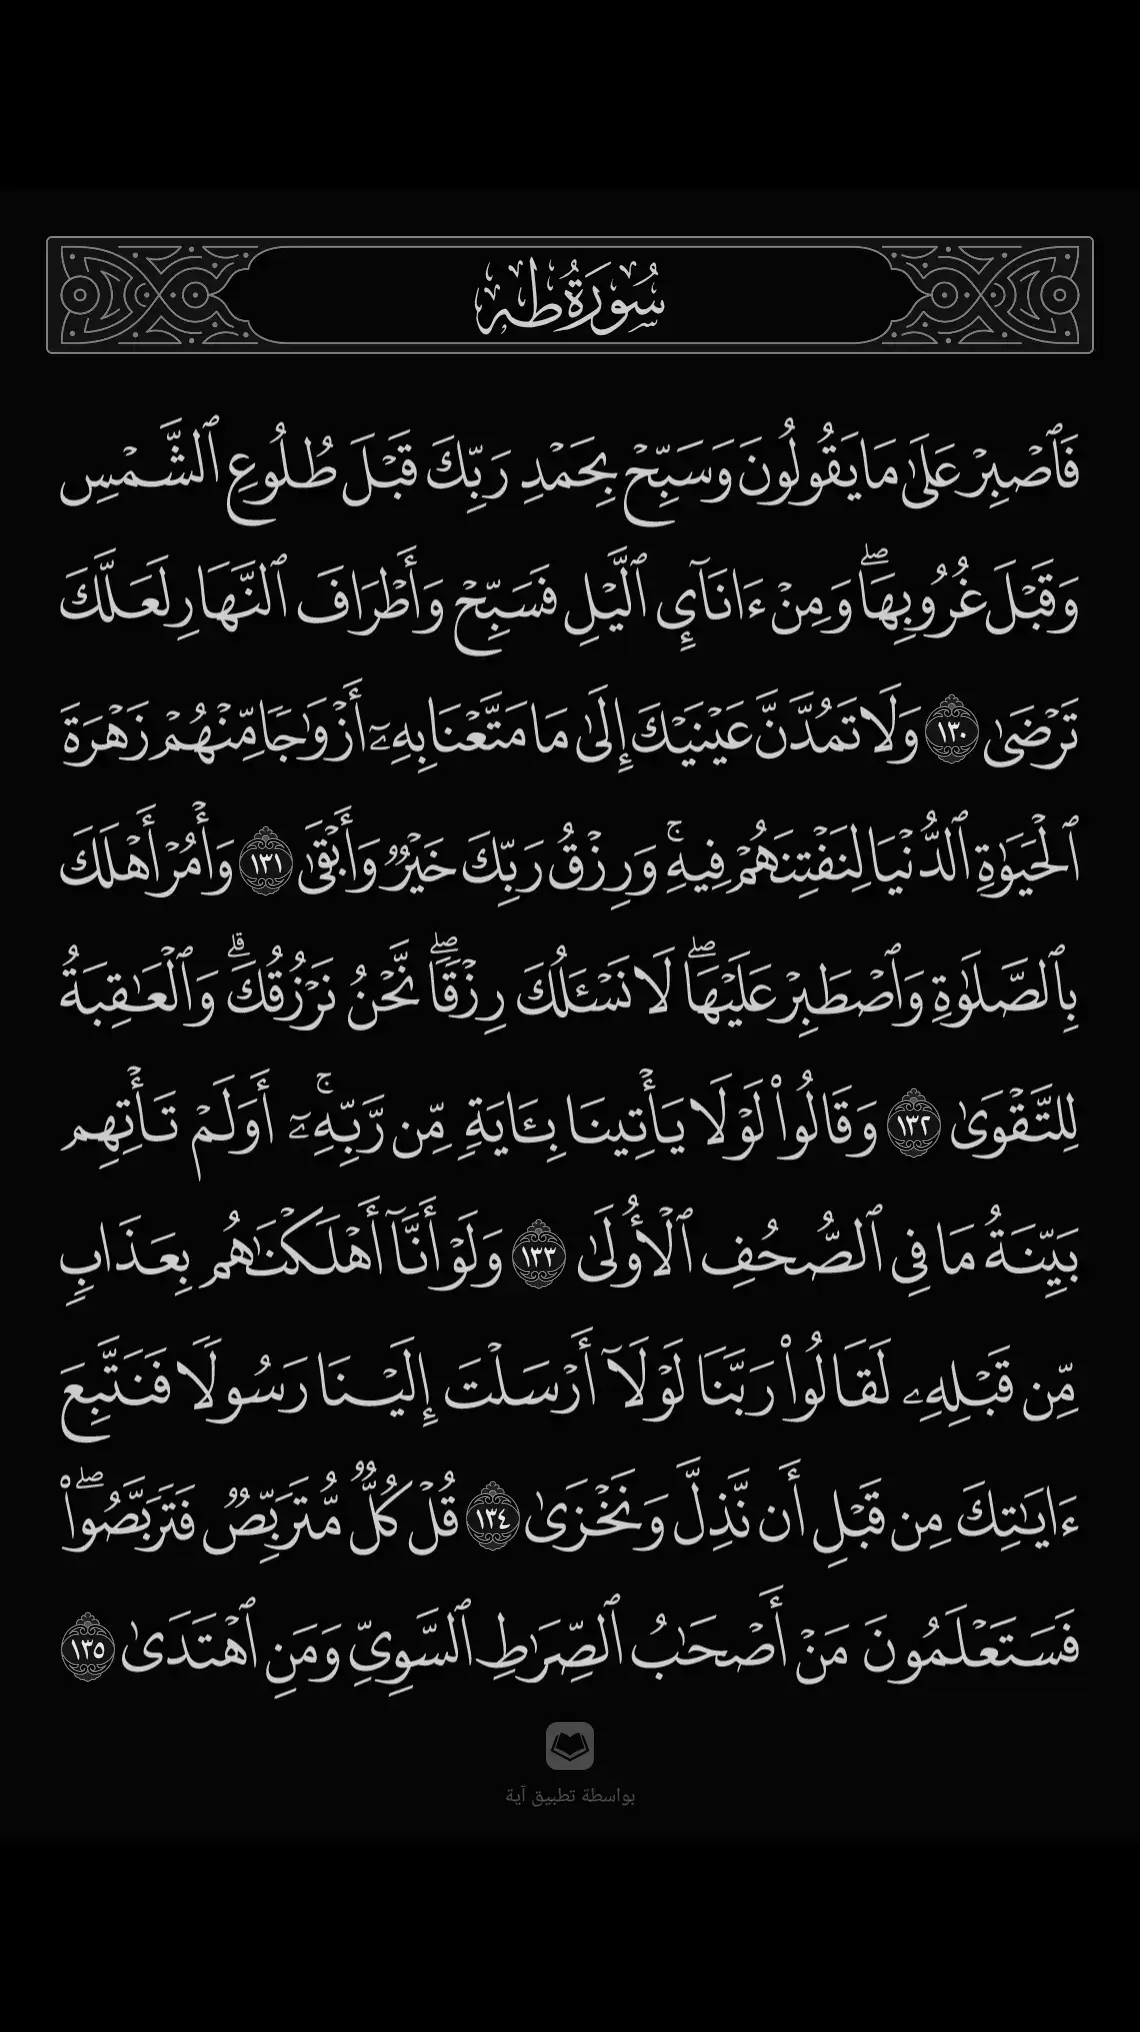 سُورَةُ طه
فَٱصۡبِرۡ عَلَىٰ مَا يَقُولُونَ وَسَبِّحۡ بِحَمۡدِ رَبِّكَ قَبۡلَ طُلُوعِ ٱلشَّمۡسِ
وَقَبۡلَ غُرُوبِهَاۖ وَمِنۡ ءَانَآيِٕ ٱلَّيۡلِ فَسَبِّحۡ وَأَطۡرَافَ ٱلنَّهَارِ لَعَلَّكَ
تَرۡضَىٰ ١٣٠ وَلَا تَمُدَّنَّ عَيۡنَيۡكَ إِلَىٰ مَا مَتَّعۡنَا بِهِۦٓ أَزۡوَٰجٗا مِّنۡهُمۡ زَهۡرَةَ
ٱلۡحَيَوٰةِ ٱلدُّنۡيَا لِنَفۡتِنَهُمۡ فِيهِۚ وَرِزۡقُ رَبِّكَ خَيۡرٞ وَأَبۡقَىٰ ١٣١ وَأۡمُرۡ أَهۡلَكَ
بِٱلصَّلَوٰةِ وَٱصۡطَبِرۡ عَلَيۡهَاۖ لَا نَسۡـَٔلُكَ رِزۡقٗاۖ نَّحۡنُ نَرۡزُقُكَۗ وَٱلۡعَٰقِبَةُ
لِلتَّقۡوَىٰ ١٣٢ وَقَالُواْ لَوۡلَا يَأۡتِينَا بِـَٔايَةٖ مِّن رَّبِّهِۦٓۚ أَوَلَمۡ تَأۡتِهِم
بَيِّنَةُ مَا فِي ٱلصُّحُفِ ٱلۡأُولَىٰ ١٣٣ وَلَوۡ أَنَّآ أَهۡلَكۡنَٰهُم بِعَذَابٖ
مِّن قَبۡلِهِۦ لَقَالُواْ رَبَّنَا لَوۡلَآ أَرۡسَلۡتَ إِلَيۡنَا رَسُولٗا فَنَتَّبِعَ
ءَايَٰتِكَ مِن قَبۡلِ أَن نَّذِلَّ وَنَخۡزَىٰ ١٣٤ قُلۡ كُلّٞ مُّتَرَبِّصٞ فَتَرَبَّصُواْۖ
فَسَتَعۡلَمُونَ مَنۡ أَصۡحَٰبُ ٱلصِّرَٰطِ ٱلسَّوِيِّ وَمَنِ ٱهۡتَدَىٰ ١٣٥
بواسطة تطبيق آية